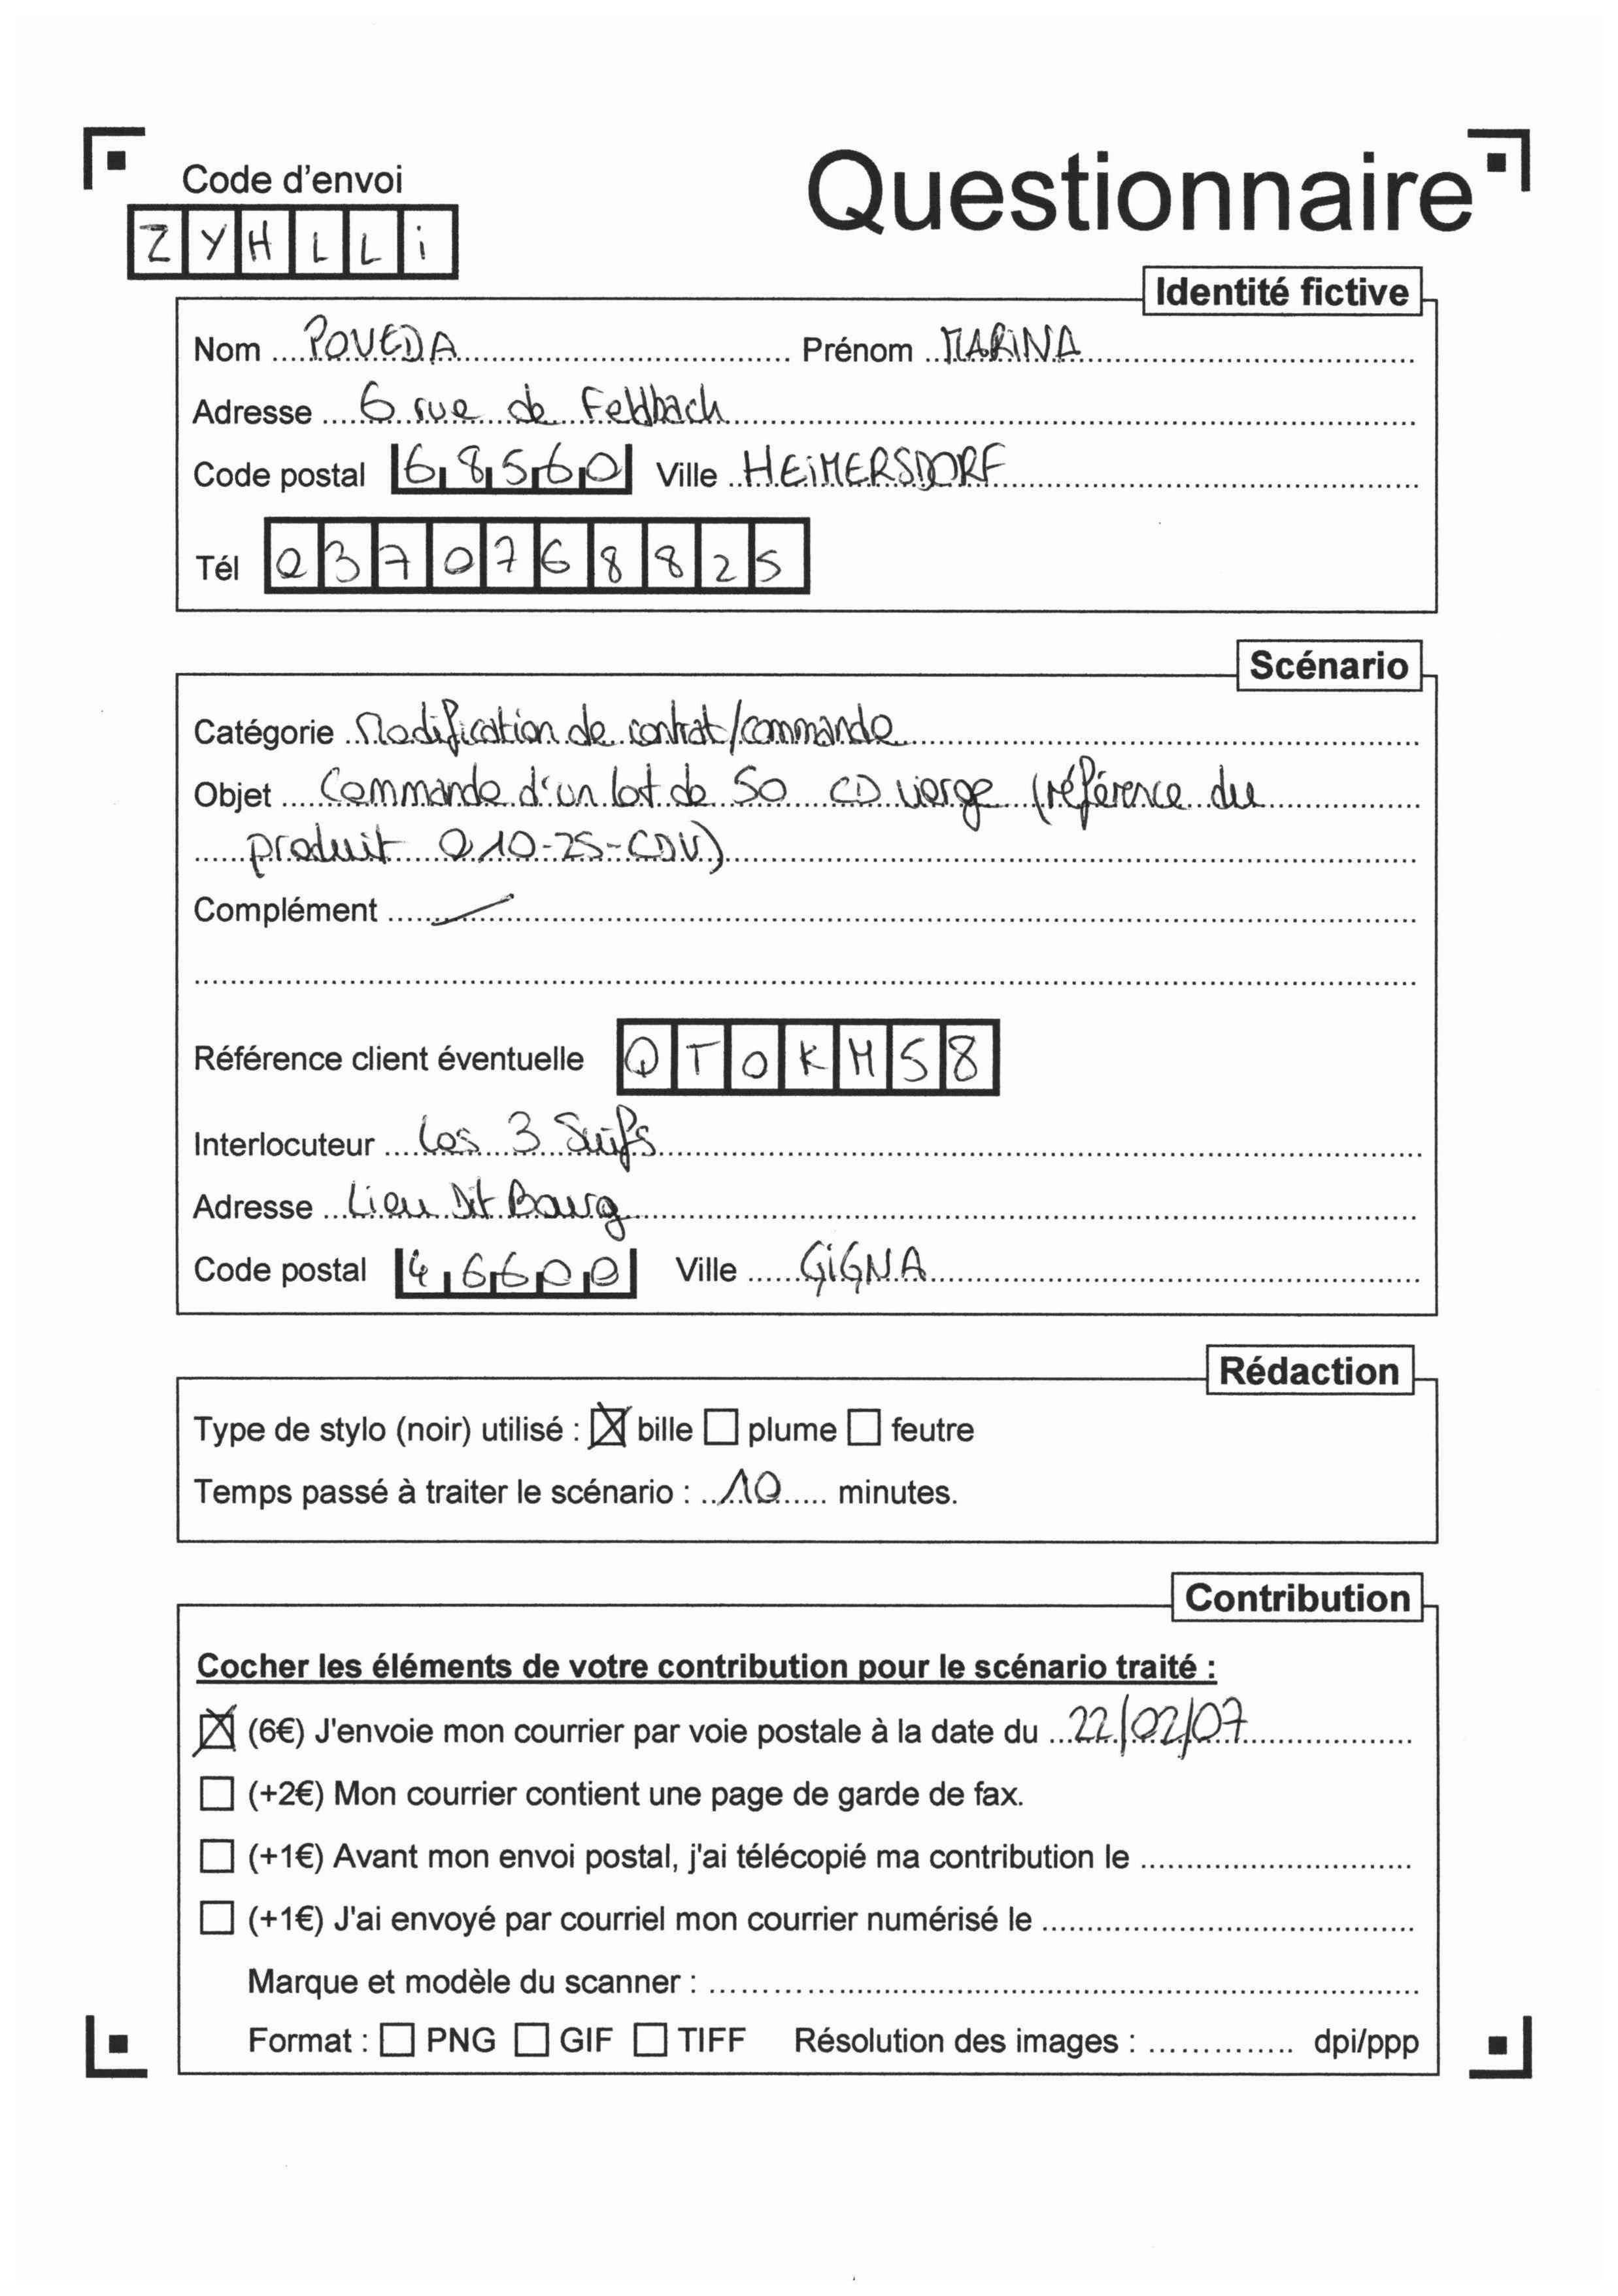 Code d'envoi
Questionnaire
ZYHLLi
Identité fictive
Nom POVEDA Prénom MARiNA
Adresse 6 rue de Feldbach
Code postal 68560 Ville HEiMERSDORF
Tél 0370768825
Scénario
Catégorie Modification de contrat/commande
Objet Commande d'un lot de 50 CD vierge (référence du
produit 010-25-CDV)
Complément
Référence client éventuelle QTOKM58
Interlocuteur Les 3 Suifs
Adresse Lieu Dit Bourg
Code postal 46600 Ville GiGNA
Rédaction
Type de stylo (noir) utilisé : bille plume feutre
Temps passé à traiter le scénario : 10 minutes.
Contribution
Cocher les éléments de votre contribution pour le scénario traité :
(6€) J'envoie mon courrier par voie postale à la date du 22/02/07
(+2€) Mon courrier contient une page de garde de fax.
(+1€) Avant mon envoi postal, j'ai télécopié ma contribution le
(+1€) J'ai envoyé par courriel mon courrier numérisé le
Marque et modèle du scanner :
Format : PNG GIF TIFF Résolution des images : dpi/ppp